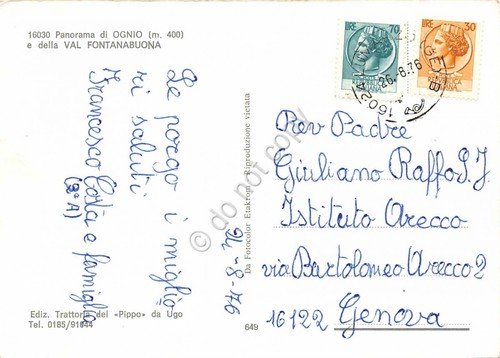 16030 Panorama di OGNIO (m. 400)
e della VAL FONTANABUONA
Le porgo i miglio
ri saluti
Francesco Costa e famiglia
(3°A)
24-8-76
Ediz. Trattoria del «Pippo» da Ugo
Tel. 0185/91044
649
Da Fotocolor Etakrom. Riproduzione vietata
LIRE 70
LIRE 30
26.-8.76
Rev Padre
Giuliano Raffo S.J
Istituto Arecco
via Bartolomeo Arecco 2
16122 Genova
© do not copy